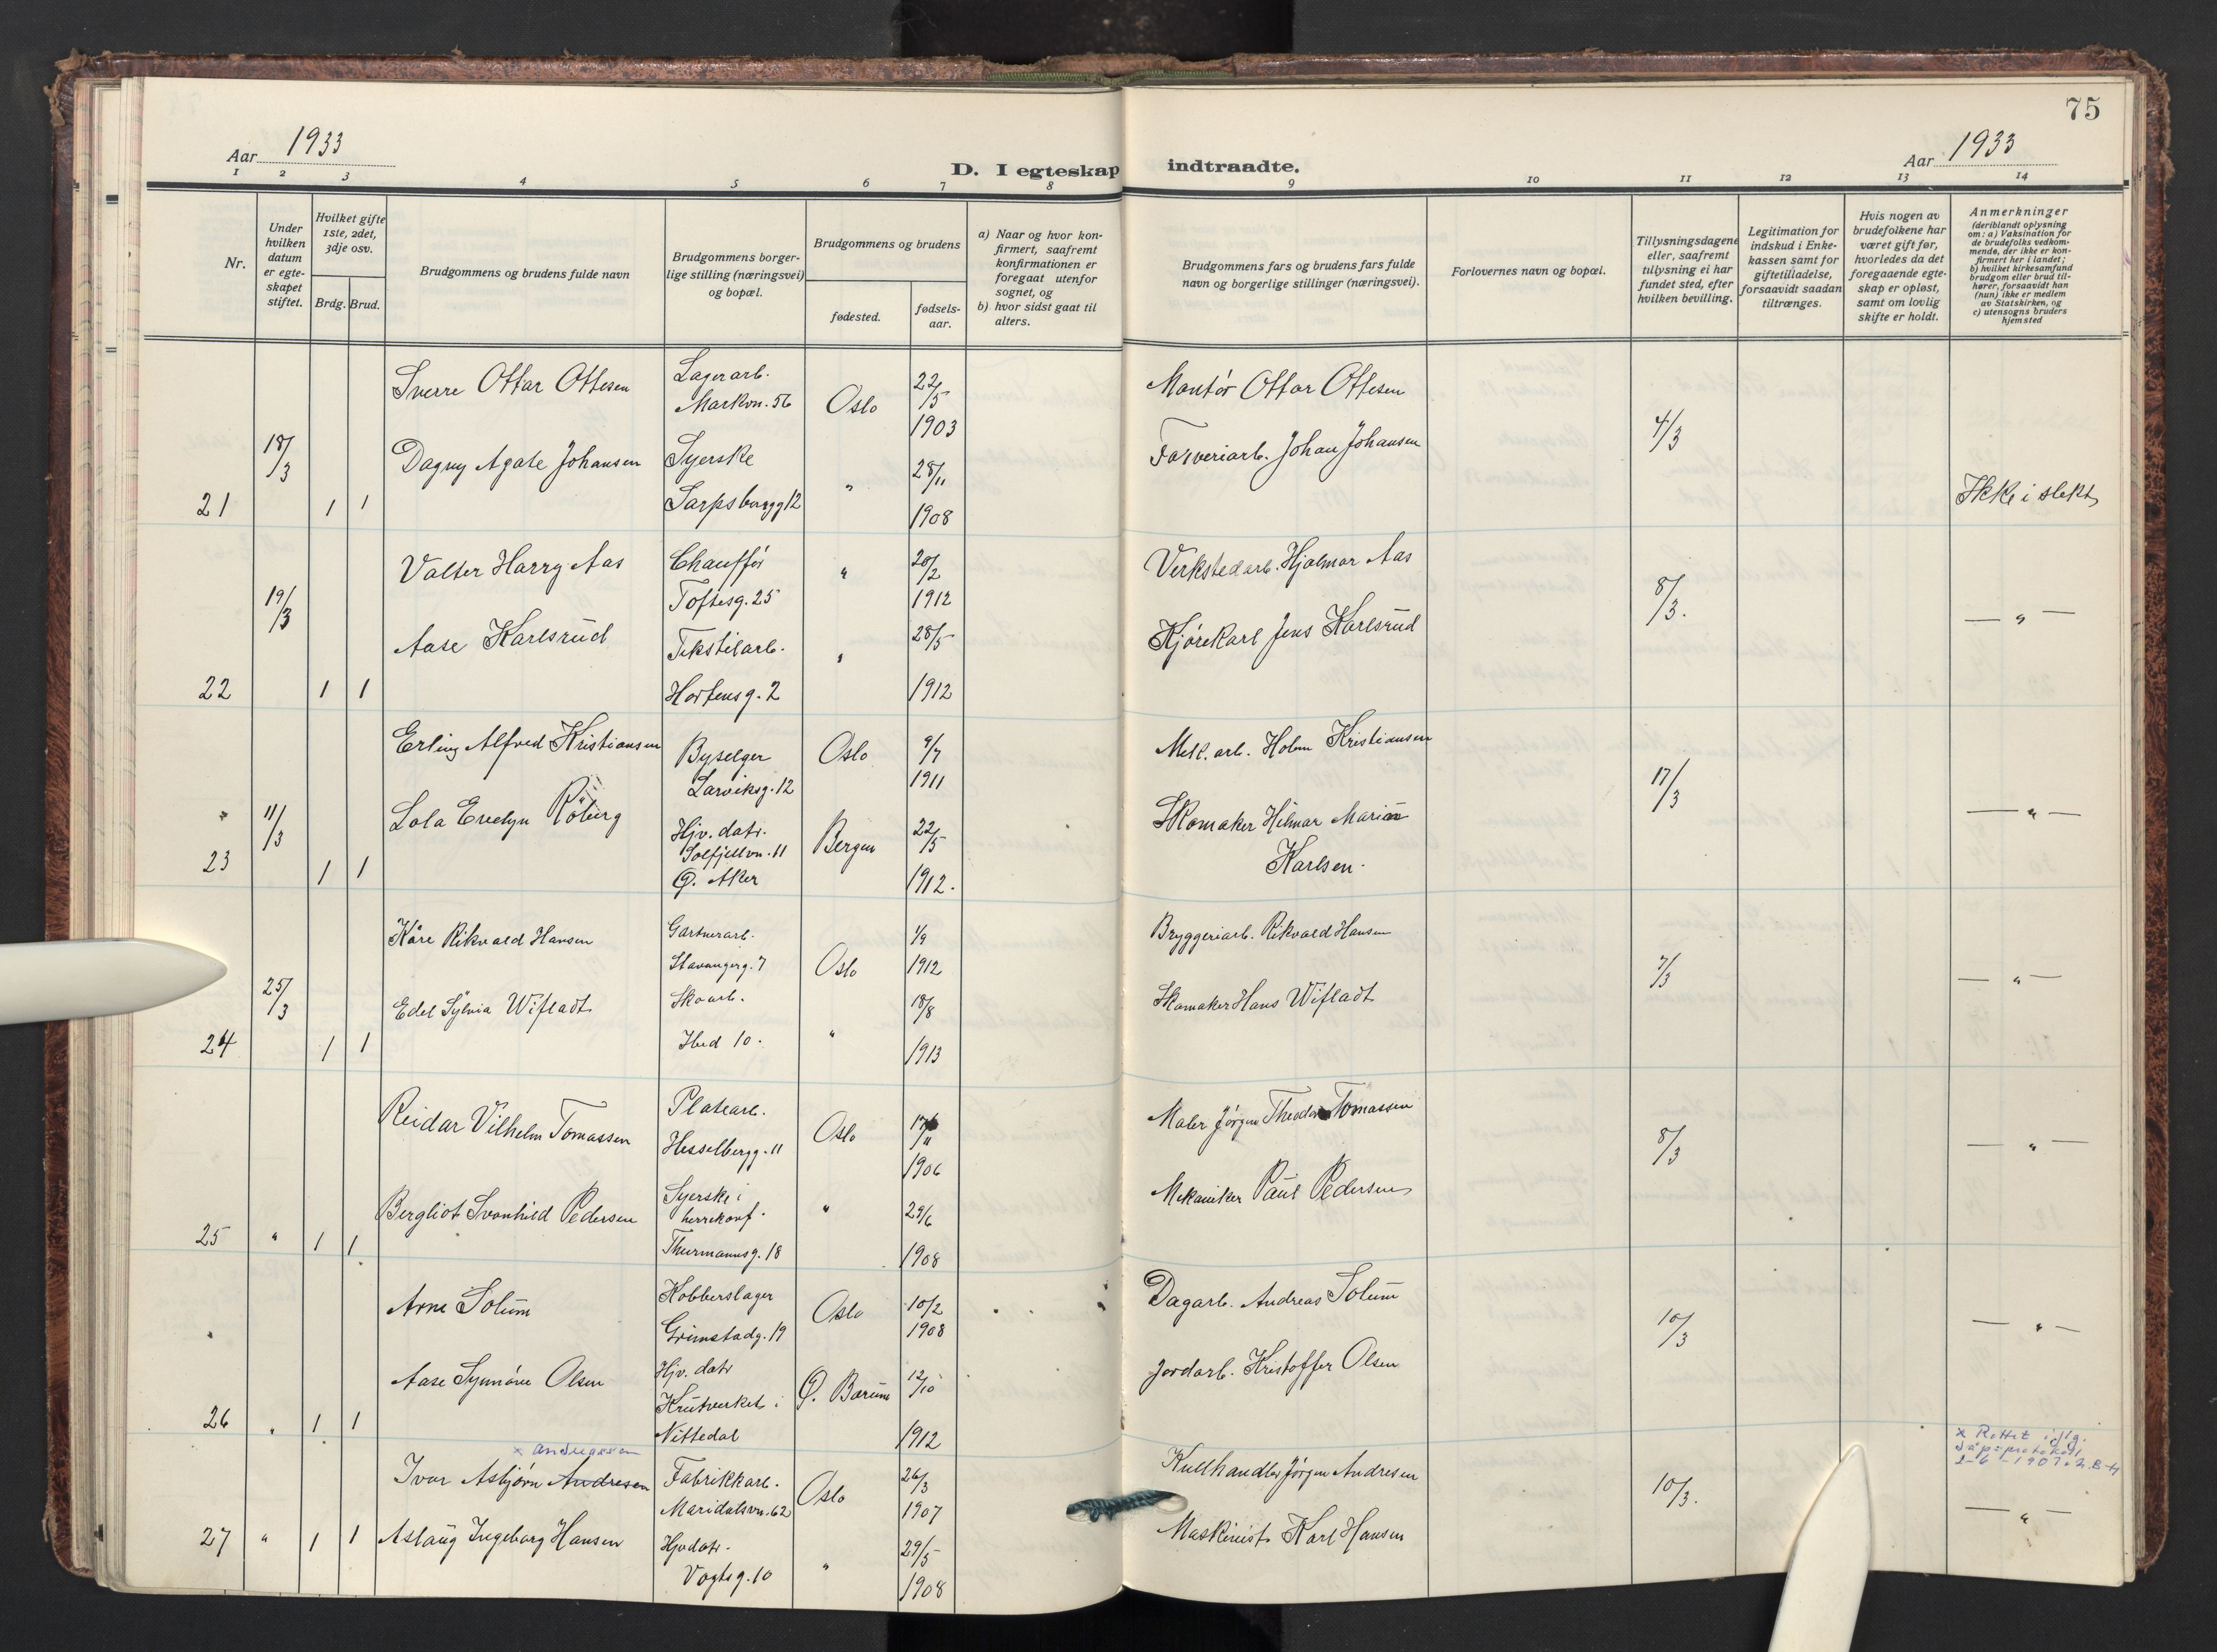 75
Aar 1933
D. I egteskap indtraadte.
Aar 1933
1 2 3 4 5 6 7 8 9 10 11 12 13 14
Nr.
Under
hvilken
datum
er egte-
skapet
stiftet.
Hvilket gifte
1ste, 2det,
3dje osv.
Brdg. Brud.
Brudgommens og brudens fulde navn
Brudgommens borger-
lige stilling (næringsvei)
og bopæl.
Brudgommens og brudens
fødested.
fødsels-
aar.
a) Naar og hvor kon-
firmert, saafremt
konfirmationen er
foregaat utenfor
sognet, og
b) hvor sidst gaat til
alters.
Brudgommens fars og brudens fars fulde
navn og borgerlige stillinger (næringsvei).
Forlovernes navn og bopæl.
Tillysningsdagene
eller, saafremt
tillysning ei har
fundet sted, efter
hvilken bevilling.
Legitimation for
indskud i Enke-
kassen samt for
giftetilladelse,
forsaavidt saadan
tiltrænges.
Hvis nogen av
brudefolkene har
været gift før,
hvorledes da det
foregaaende egte-
skap er opløst,
samt om lovlig
skifte er holdt.
Anmerkninger
(deriblandt oplysning
om: a) Vaksination for
de brudefolks vedkom-
mende, der ikke er kon-
firmert her i landet;
b) hvilket kirkesamfund
brudgom eller brud til-
hører, forsaavidt han
(hun) ikke er medlem
av Statskirken, og
c) utensogns bruders
hjemsted
Sverre Ottar Ottesen Lagerarb. Oslo 22/5 Montør Ottar Ottesen
Markvn. 56 1903
18/3 Dagny Agate Johansen Syerske " 28/11 Farveriarb. Johan Johansen 4/3
21 1 1 Sarpsborgg 12 1908 Ikke i slekt
Valter Harry Aas Chauffør " 28/2 Verkstedarb. Hjalmar Aas
Toftesg. 25 1912
19/3 Aase Karlsrud Tekstilarb. " 28/5 Kjørekarl Jens Karlsrud 8/3. — " —
22 1 1 Hortensg. 2 1912
Erling Alfred Kristiansen Byselger Oslo 9/7 Mek. arb. Holm Kristiansen
Larviksg. 12 1911
" 11/3 Lola Evelyn Röberg Hjv. datr. Bergen 22/5 Skomaker Hilmar Marian 17/3 — " —
Solfjellvn. 11 Karlsen.
23 1 1 Ø. Aker 1912.
Kåre Rikvald Hansen Gartnerarb. Oslo 1/9 Bryggeriarb. Rikvald Hansen
Stavangerg. 7 1912
25/3 Edel Sylvia Wifladt Skoarb. 18/8 Skomaker Hans Wifladt 7/3 — " —
24 1 1 Ibid 10. " 1913
Reidar Vilhelm Tomassen Platearb. Oslo 17/11 Maler Jørgen Theodor Tomassen
Hesselbergg. 11 1906
Bergliot Svanhild Pedersen Syerske i " 29/6 Mekaniker Paul Pedersen 8/3 — " —
herrekonf.
25 " 1 1 Thurmannsg. 18 1908
Arne Solum Kobberslager Oslo 10/2 Dagarb. Andreas Solum
Grimstadg. 19 1908 10/3 — " —
Aase Synnöve Olsen Hjv. datr Ø. Bærum 12/10 Jordarb. Kristoffer Olsen
Krutverket i
26 " 1 1 Nittedal 1912
x Andreassen x Rettet iflg.
dåpsprotokoll
Ivar Asbjørn Andresen Fabrikkarb. Oslo 26/3 Kullhandler Jørgen Andresen
Maridalsvn. 62 1907 10/3. — " —
27 " 1 1 Aslaug Ingeborg Hansen Hjvdatr. " 29/5 Maskinist Karl Hansen
Vogtsg. 10 1908